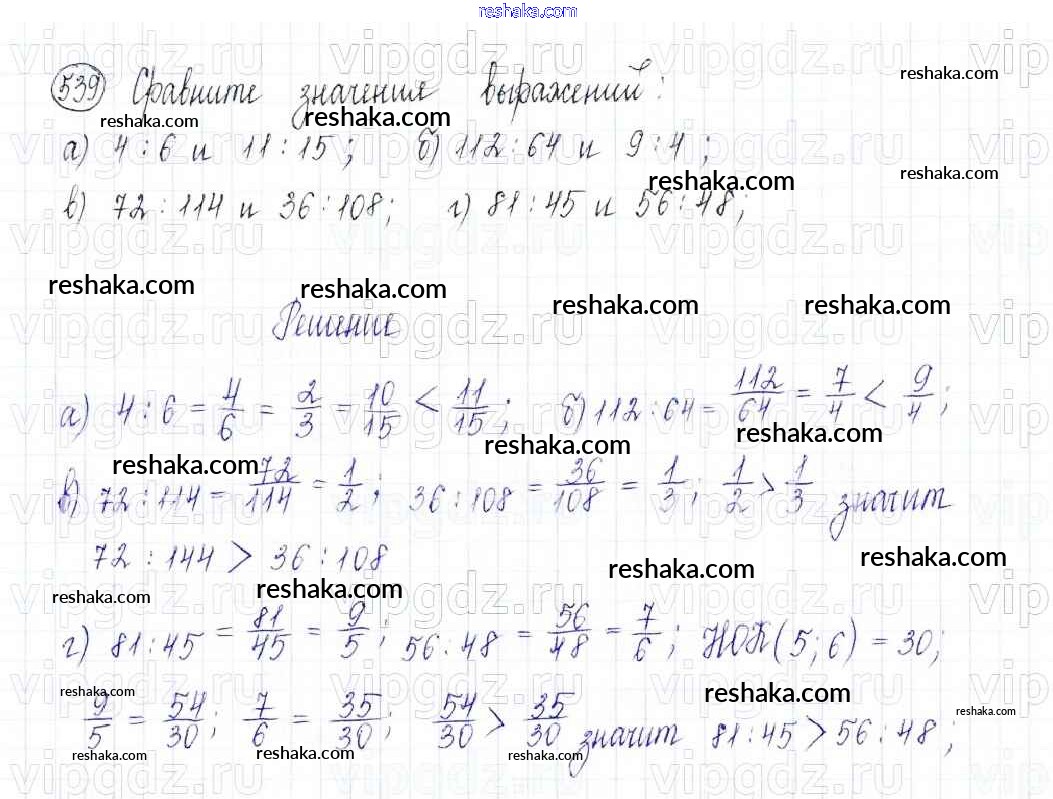 reshaka.com
539 Сравните значения выражений:
а) 4 : 6 и 11 : 15; б) 112 : 64 и 9 : 4;
в) 72 : 114 и 36 : 108; г) 81 : 45 и 56 : 48;
Решение
а) 4 : 6 = 4/6 = 2/3 = 10/15 < 11/15; б) 112 : 64 = 112/64 = 7/4 < 9/4;
в) 72 : 114 = 72/114 = 1/2; 36 : 108 = 36/108 = 1/3; 1/2 > 1/3 значит
72 : 144 > 36 : 108
г) 81 : 45 = 81/45 = 9/5; 56 : 48 = 56/48 = 7/6; НОК(5; 6) = 30;
9/5 = 54/30; 7/6 = 35/30; 54/30 > 35/30 значит 81 : 45 > 56 : 48;